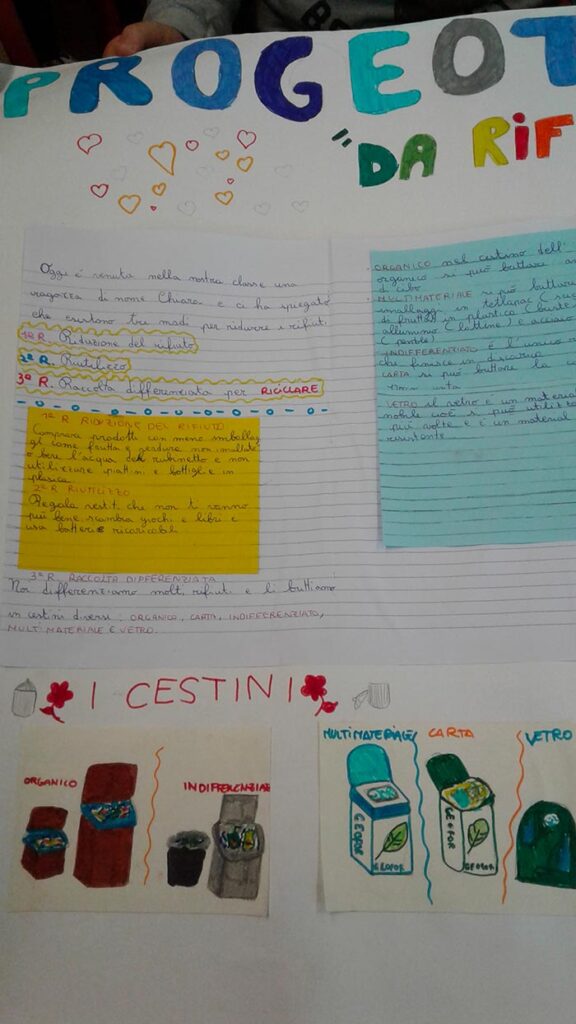 PROGEOT
"DA RiF
Oggi è venuta nella nostra classe una
ragazza di nome Chiara e ci ha spiegato
che esistono tre modi per ridurre i rifiuti.
1ª R. Riduzione del rifiuto
2ª R. Riutilizzo
3ª R. Raccolta differenziata per RICICLARE
1ª R RIDUZIONE DEL RIFIUTO
Comprare prodotti con meno imballag
gi come frutta e verdure non imbustate
o bere l'acqua del rubinetto e non
utilizzare piattini e bottiglie in
plastica
2ª R RIUTILIZZO
Regala vestiti che non ti vanno
più bene, scambia giochi e libri e
usa batterie ricaricabili
3ª R RACCOLTA DIFFERENZIATA
Noi differenziamo molti rifiuti e li buttiamo
in cestini diversi: ORGANICO, CARTA, INDIFFERENZIATO,
MULTIMATERIALE E VETRO.
ORGANICO nel cestino dell'
organico si può buttare
di cibo
MULTIMATERIALE si può buttare
imballaggi in tetrapac
di frutta) in plastica
alluminio (lattine) e acciaio
INDIFFERENZIATO è l'unico
che finisce in discarica
CARTA si può buttare la
VETRO il vetro è un materia
nobile così si può
più volte e è un material
resistente
I CESTINI
ORGANICO
INDIFFERENZIATO
MULTIMATERIALE
CARTA
VETRO
GEOFOR
GEOFOR
GEOFOR
GEOFOR